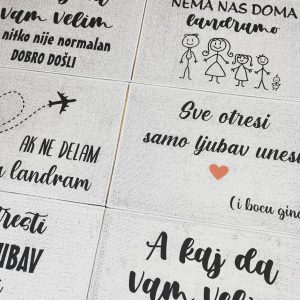 A kaj da
vam velim
nitko nije normalan
DOBRO DOŠLI
NEMA NAS DOMA
landramo
AK NE DELAM
landram
Sve otresi
samo ljubav unesi
(i bocu
A kaj da
vam velim